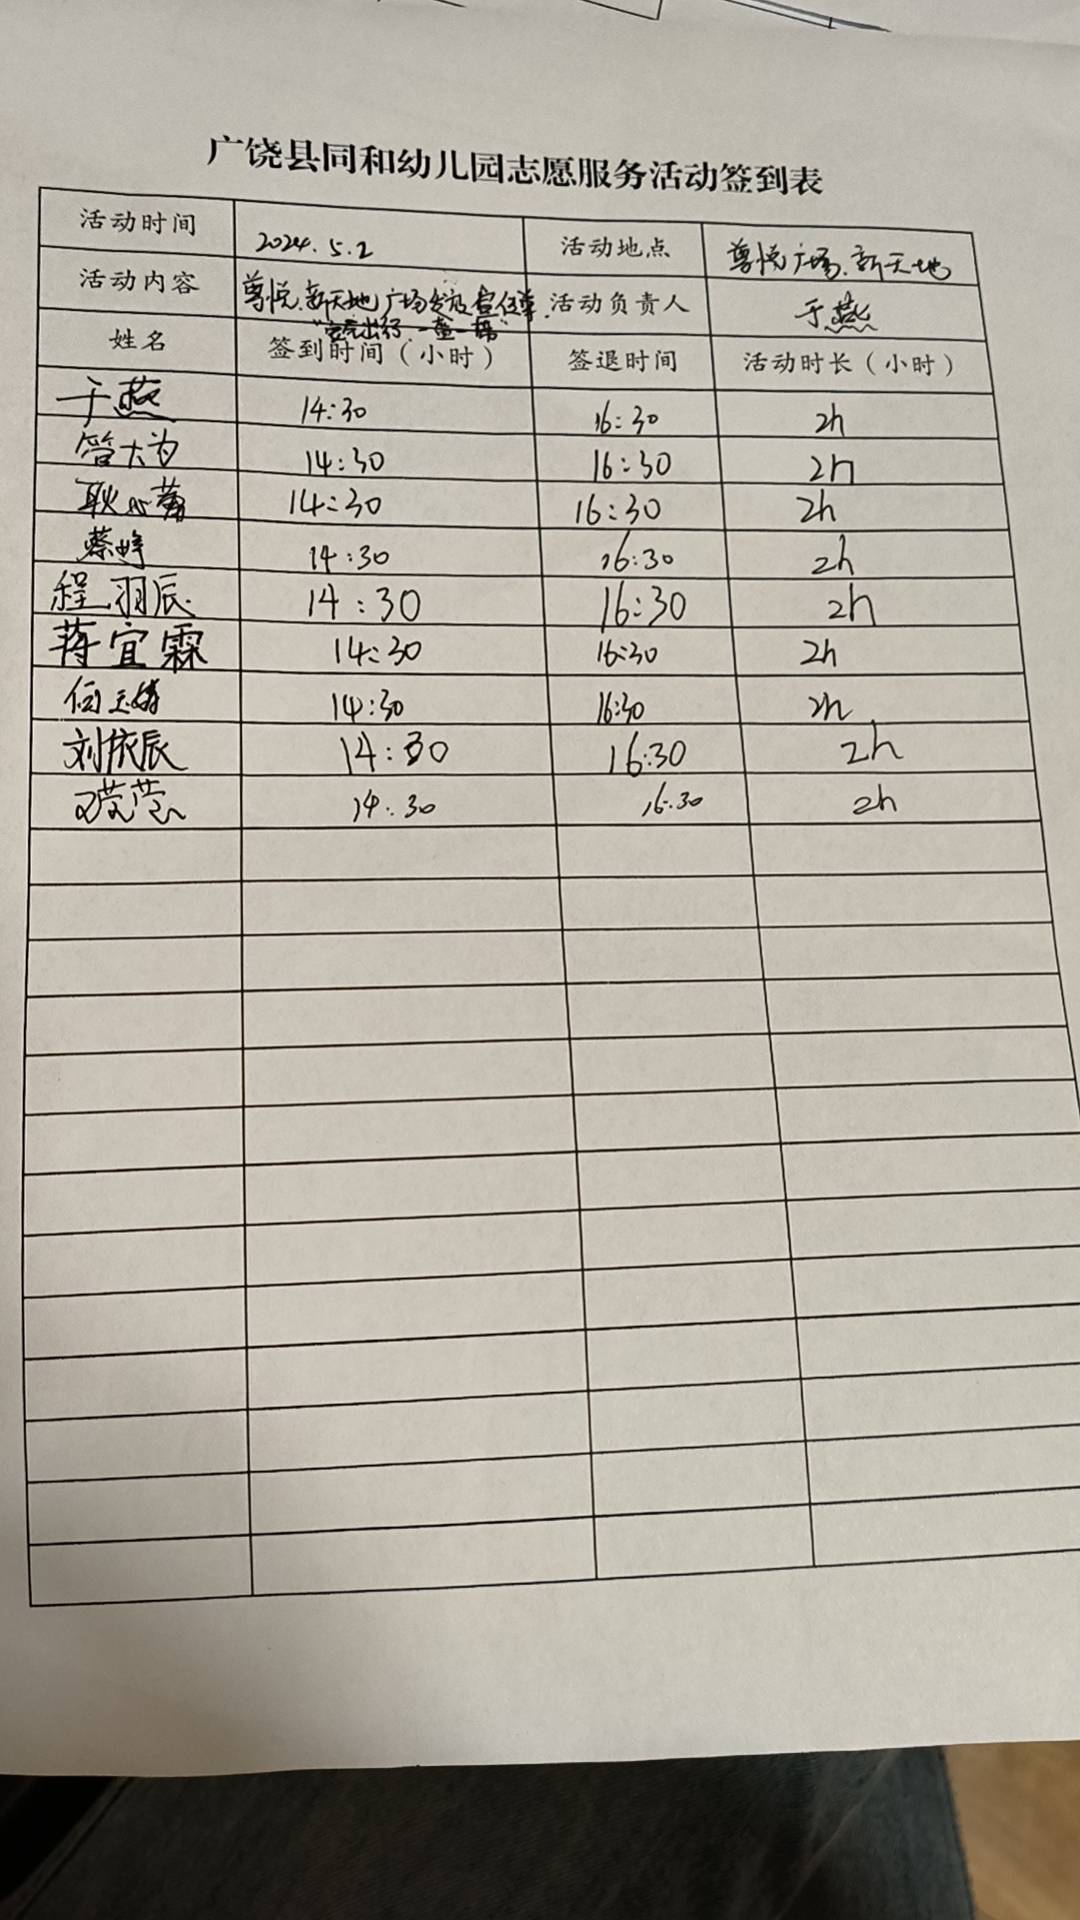 广饶县同和幼儿园志愿服务活动签到表
活动时间 2024.5.2 活动地点 尊悦广场.新天地
活动内容 尊悦.新天地广场发放宣传单 活动负责人 于燕
"安全出行 一盔一带"
姓名 签到时间(小时) 签退时间 活动时长(小时)
于燕 14:30 16:30 2h
管大为 14:30 16:30 2h
耿 14:30 16:30 2h
蔡 14:30 16:30 2h
程羽辰 14:30 16:30 2h
蒋宜霖 14:30 16:30 2h
任玉婷 14:30 16:30 2h
刘依辰 14:30 16:30 2h
14:30 16:30 2h